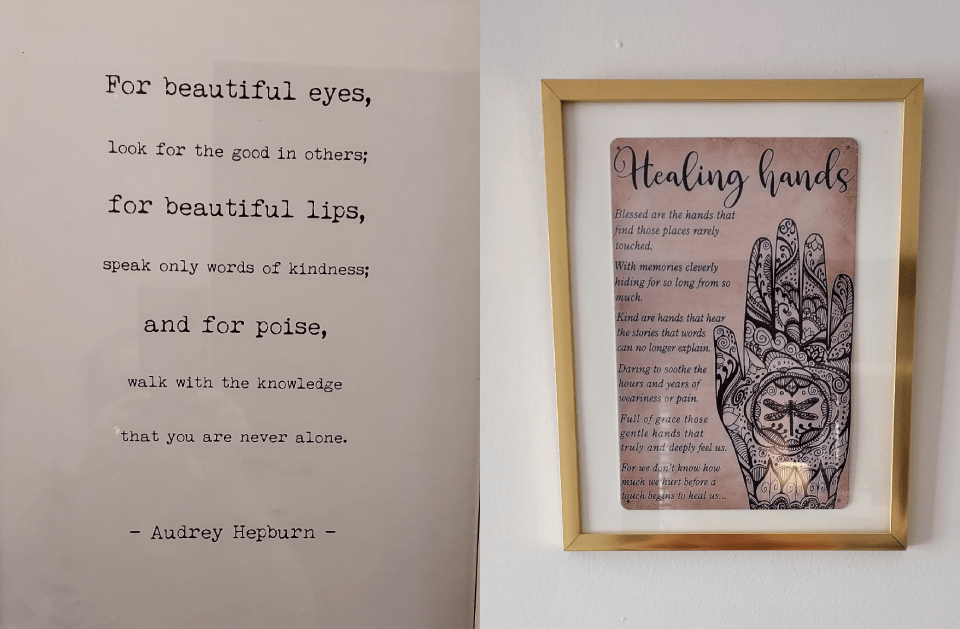 For beautiful eyes,
look for the good in others;
for beautiful lips,
speak only words of kindness;
and for poise,
walk with the knowledge
that you are never alone.
– Audrey Hepburn –
Healing hands
Blessed are the hands that
find those places rarely
touched.
With memories cleverly
hiding for so long from so
much.
Kind are hands that hear
the stories that words
can no longer explain.
Daring to soothe the
hours and years of
weariness or pain.
Full of grace those
gentle hands that
truly and deeply feel us.
For we don't know how
much we hurt before a
touch begins to heal us...